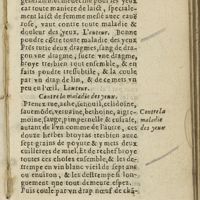 toute maniere de laict, speciale-
ment laict de femme meslé auec eauë
rose, vaut contre toute maladie &
douleur des yeux. L'auteur. Bonne
poudre côtre toute maladie des yeux
Prēs tutie deux dragmes, sang de dra-
gon vne dragme, sucre vne dragme,
broye tresbien tout ensemble, & en
faits poudre tressubtile, & la coule
par vn drap de lin, & de ce mets vn
peu en l'œil. L'auteur.
Contre la maladie des yeux.
Ptenez rue, ache, fenouil, celidoine,
saxemôde, veruaine, bethoine, aigre-
moine, sauge, pimpenelle & eufraise,
autant de l'vn comme de l'autre, ces
douze herbes broyras tresbien auec
vn peu de couperose, & y mets deux
cuillerées de miel, Et de rechef broye
toutes ces choses ensemble, & les de-
stempe en vin blanc vieil de sept ans
ou enuiron, & les destrempe si long-
guement que tout demeure espez.
Puis coule par vn drap neuf de chā-
Contre la
maladie
des yeux